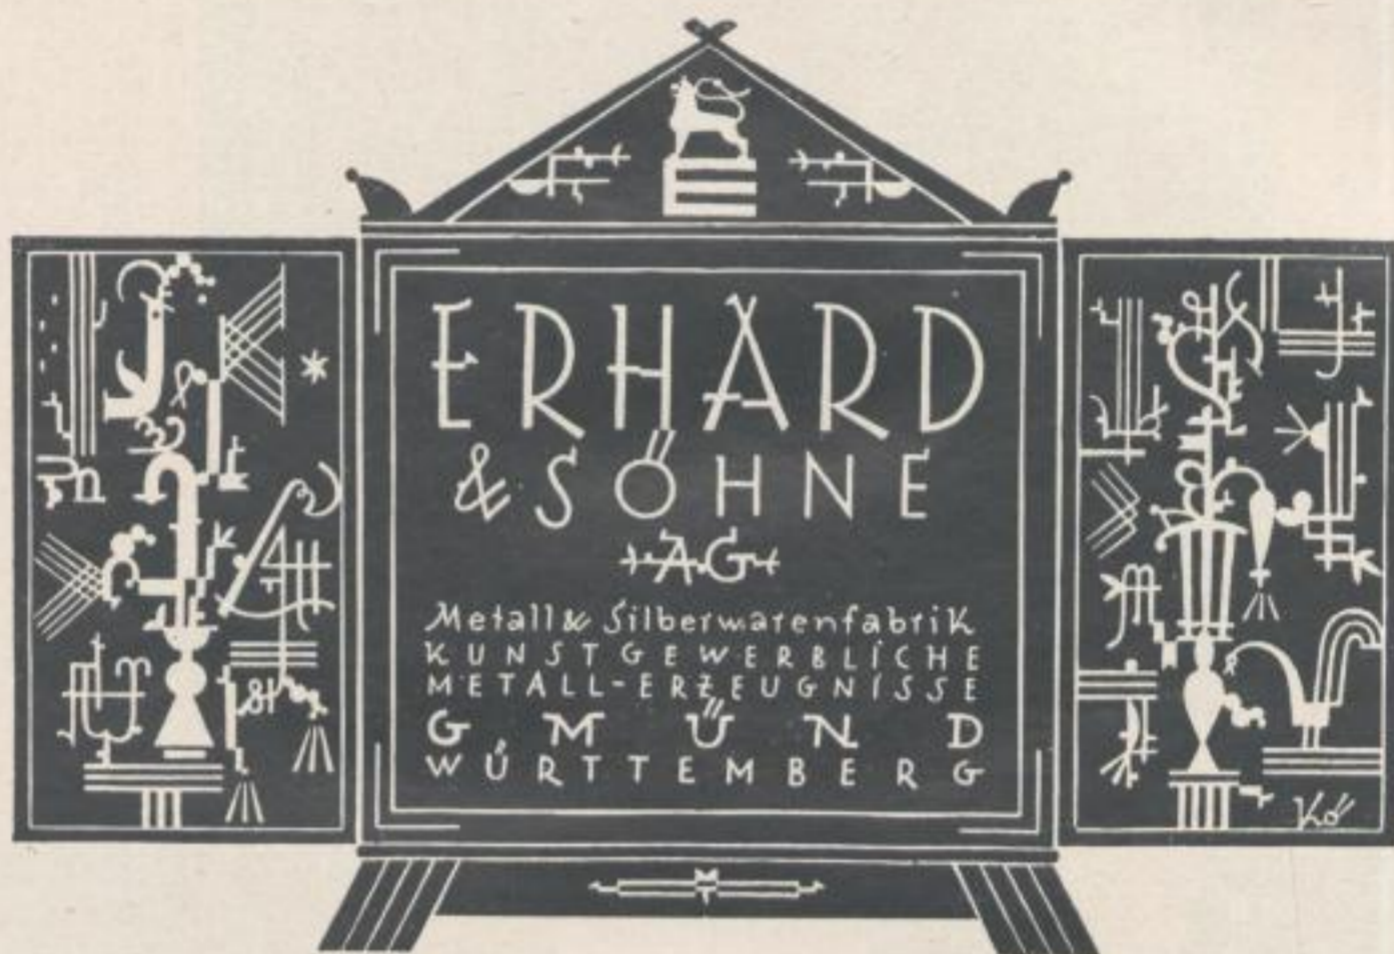 ERHARD
& SÖHNE
A.G.
Metall & Silberwarenfabrik
KUNSTGEWERBLICHE
METALL-ERZEUGNISSE
GMÜND
WÜRTTEMBERG
Kö